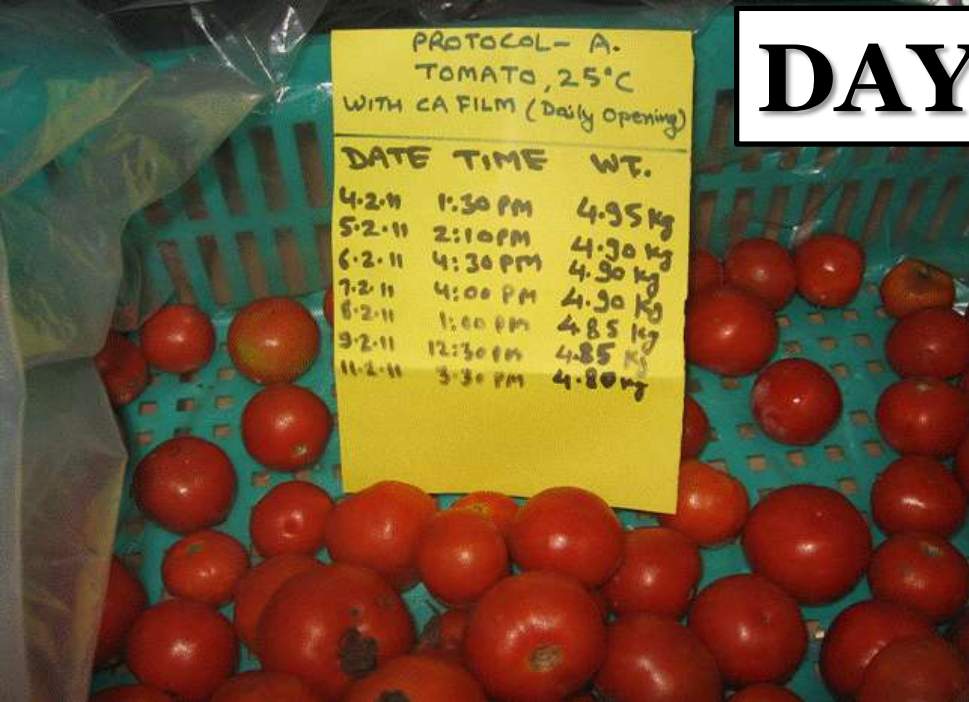 PROTOCOL- A.
TOMATO, 25°C
WITH CA FILM (Daily Opening)
DATE TIME WT.
4.2.11 1:30 PM 4.95 kg
5.2.11 2:10 PM 4.90 kg
6.2.11 4:30 PM 4.90 kg
7.2.11 4:00 PM 4.90 Kg
8.2.11 1:00 PM 4.85 kg
9.2.11 12:30 PM 4.85 Kg
11.2.11 3:30 PM 4.80 kg
DAY